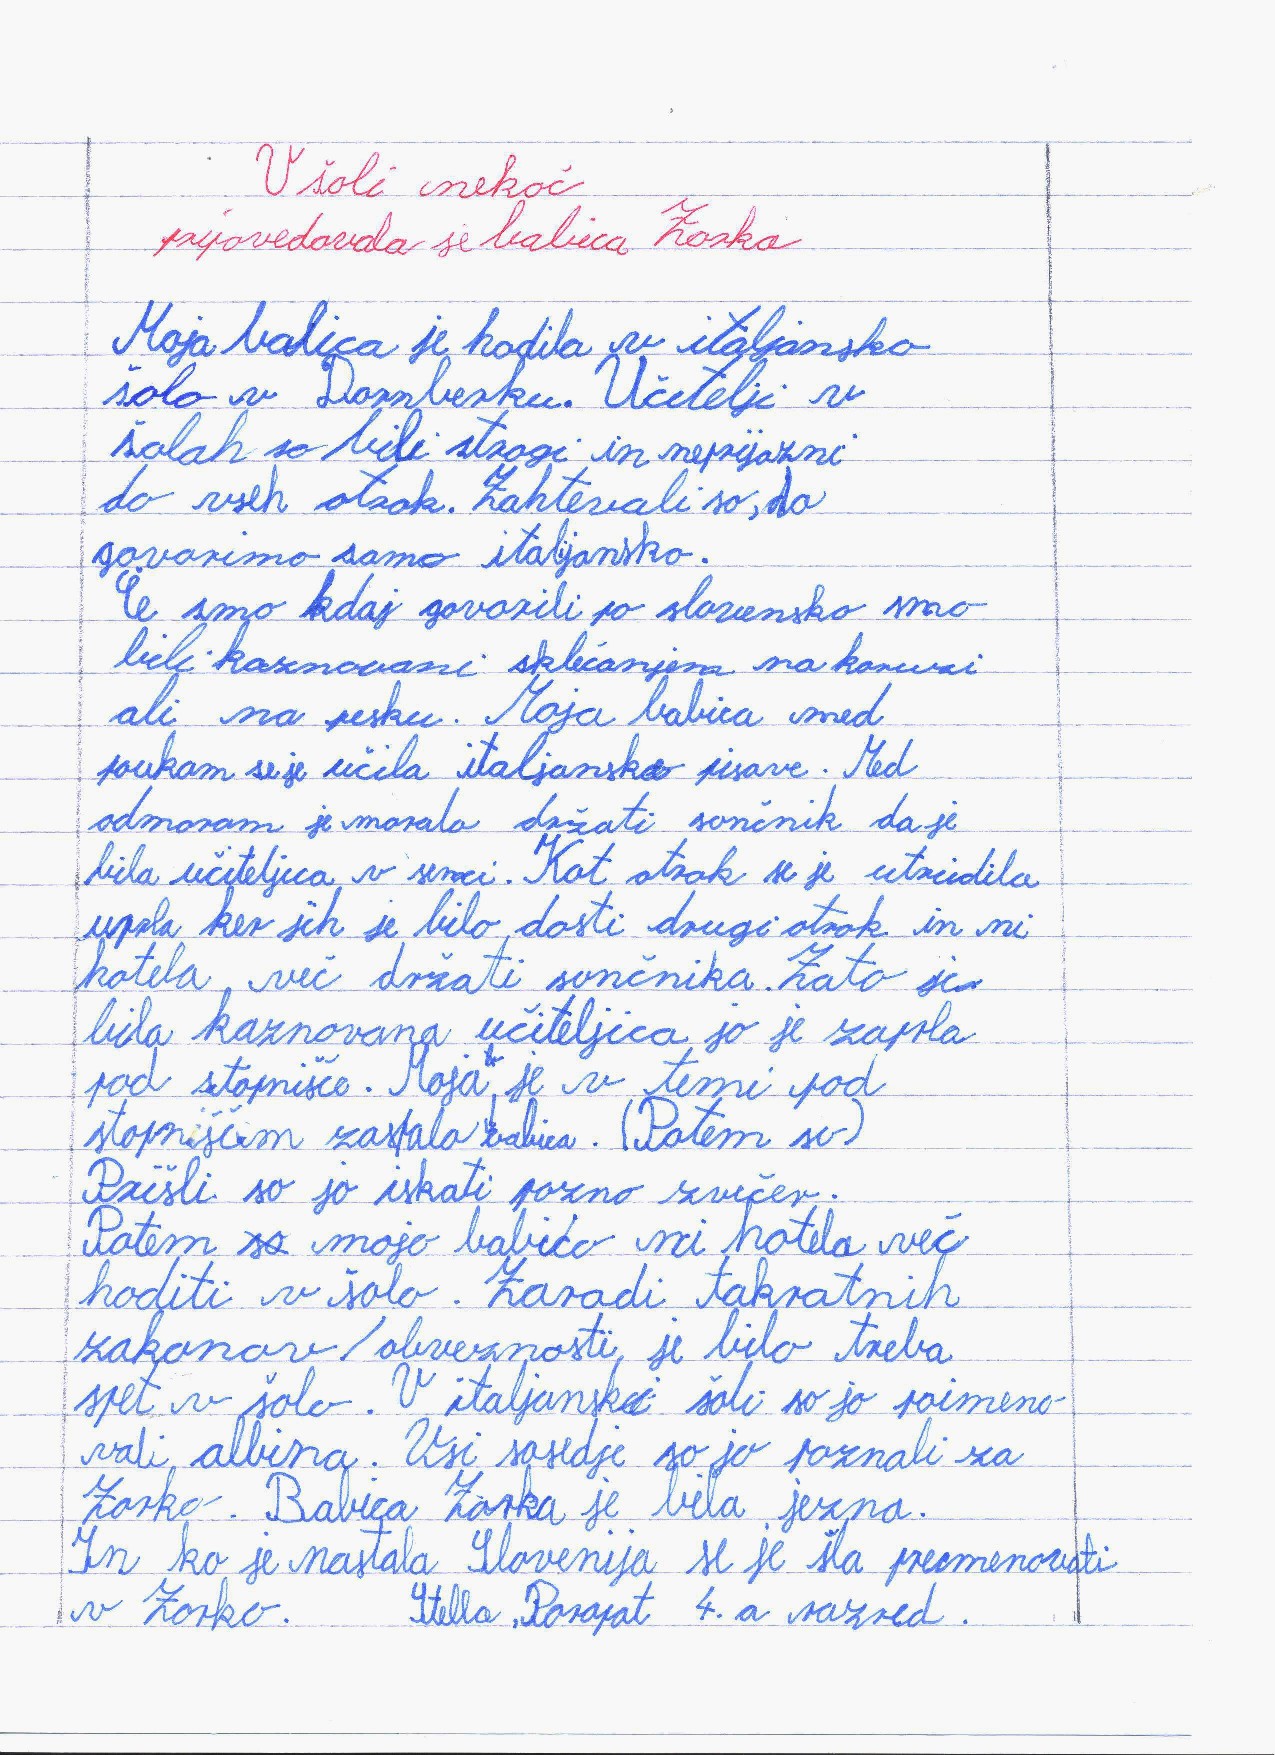 V šoli nekoč
pripovedovala je babica Zorka
Moja babica je hodila v italjansko
šolo v Dornberku. Učitelji v
šolah so bili strogi in neprijazni
do vseh otrok. Zahtevali so, da
govorimo samo italijansko.
Če smo kdaj govorili po slovensko smo
bili kaznovani sklečanjem na koruzi
ali na pesku. Moja babica med
poukam se je učila italjansko pisave. Med
odmoram je morala držati sončnik da je
bila učiteljica v senci. Kot otrok se je utrudila
uprla ker jih je bilo dosti drugi otrok in ni
hotela več držati sončnika. Zato je
bila kaznovana učiteljica jo je zaprla
pod stopnišče. Moja je v temi pod
stopniščem zaspala babica. (Potem so)
Prišli so jo iskati pozno zvečer.
Potem so mojo babico ni hotela več
hoditi v šolo. Zaradi takratnih
zakonov/obveznosti je bilo treba
spet v šolo. V italjanski šoli so jo poimeno-
vali albina. Vsi sosedje so jo poznali za
Zorko. Babica Zorka je bila jezna.
In ko je nastala Slovenija se je šla preimenovati
v Zorko. Stella Parapat 4. a razred.